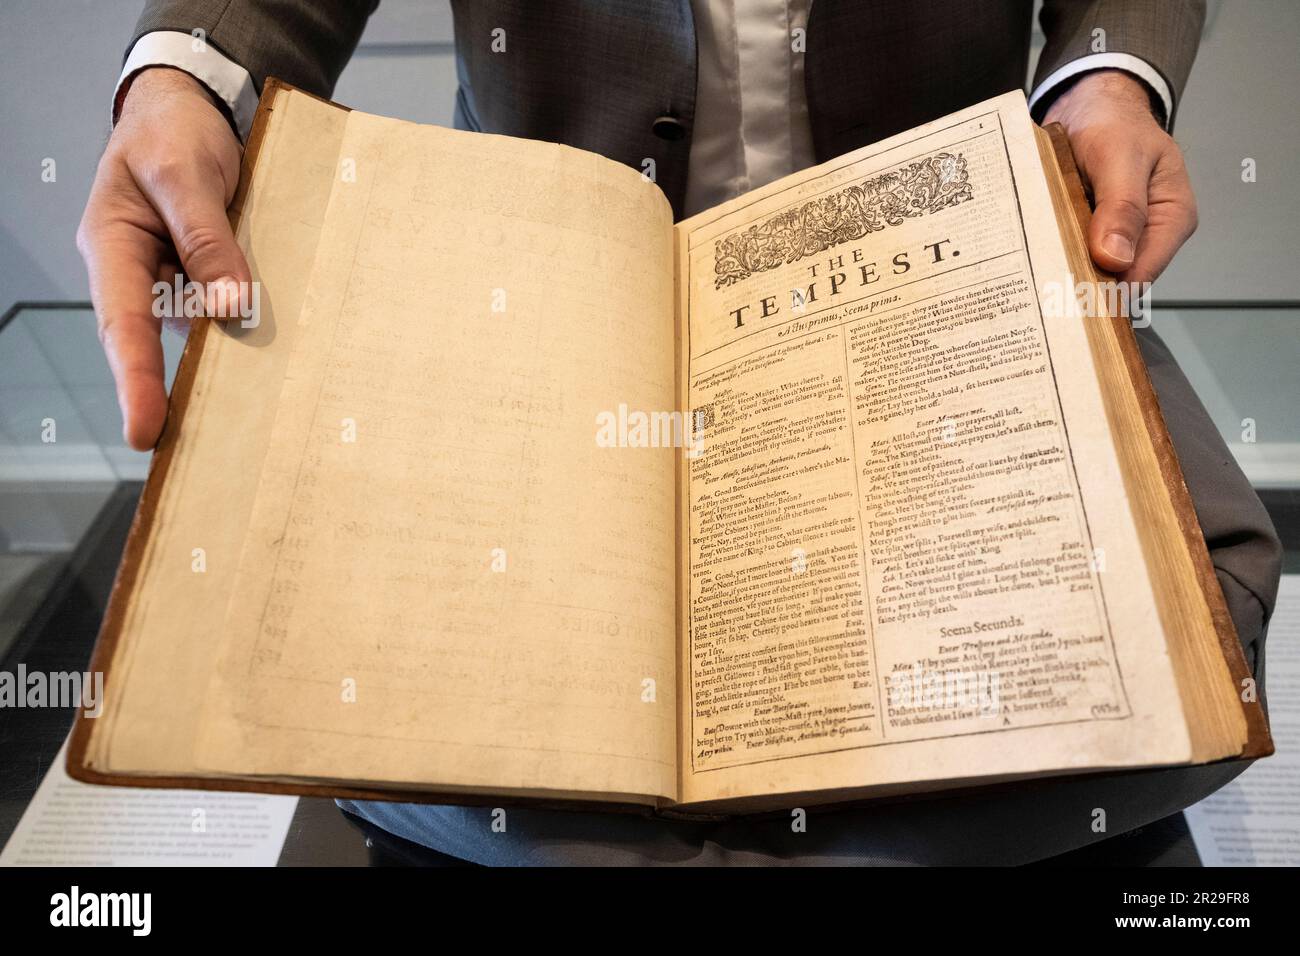 1
THE
TEMPEST.
Actus primus, Scena prima.
A tempestuous noise of Thunder and Lightning heard: En-
ter a Ship-master, and a Boteswaine.
Master.
Bote-swaine.
Botes. Heere Master: What cheere?
Mast. Good: Speake to th'Mariners: fall
too't, yarely, or we run our selues a ground,
bestirre, bestirre. Exit.
Enter Mariners.
Botes. Heigh my hearts, cheerely, cheerely my harts:
yare, yare: Take in the toppe-sale: Tend to th'Masters
whistle: Blow till thou burst thy winde, if roome e-
nough.
Enter Alonso, Sebastian, Anthonio, Ferdinando,
Gonzalo, and others.
Alon. Good Boteswaine haue care: where's the Ma-
ster? Play the men.
Botes. I pray now keepe below.
Anth. Where is the Master, Boson?
Botes. Do you not heare him? you marre our labour,
Keepe your Cabines: you do assist the storme.
Gonz. Nay, good be patient.
Botes. When the Sea is: hence, what cares these roa-
rers for the name of King? to Cabine; silence: trouble
vs not.
Gon. Good, yet remember whom thou hast aboord.
Botes. None that I more loue then my selfe. You are
a Counsellor, if you can command these Elements to si-
lence, and worke the peace of the present, wee will not
hand a rope more, vse your authoritie: If you cannot,
giue thankes you haue liu'd so long, and make your
selfe readie in your Cabine for the mischance of the
houre, if it so hap. Cheerely good hearts: out of our
way I say. Exit.
Gon. I haue great comfort from this fellow: methinks
he hath no drowning marke vpon him, his complexion
is perfect Gallowes: stand fast good Fate to his han-
ging, make the rope of his destiny our cable, for our
owne doth little aduantage: If he be not borne to bee
hang'd, our case is miserable. Exit.
Enter Boteswaine.
Botes. Downe with the top-Mast: yare, lower, lower,
bring her to Try with Maine-course. A plague——
A cry within. Enter Sebastian, Anthonio & Gonzalo.
vpon this howling: they are lowder then the weather,
or our office: yet againe? What do you heere? Shal we
giue ore and drowne, haue you a minde to sinke?
Sebas. A poxe o'your throat, you bawling, blasphe-
mous incharitable Dog.
Botes. Worke you then.
Anth. Hang cur, hang, you whoreson insolent Noyse-
maker, we are lesse afraid to be drownde, then thou art.
Gonz. I'le warrant him for drowning, though the
Ship were no stronger then a Nutt-shell, and as leaky as
an vnstanched wench.
Botes. Lay her a hold, a hold, set her two courses off
to Sea againe, lay her off.
Enter Mariners wet.
Mari. All lost, to prayers, to prayers, all lost.
Botes. What must our mouths be cold?
Gonz. The King, and Prince, at prayers, let's assist them,
for our case is as theirs.
Sebas. I'am out of patience.
An. We are meerly cheated of our liues by drunkards,
This wide-chopt-rascall, would thou mightst lye drow-
ning the washing of ten Tides.
Gonz. Hee'l be hang'd yet,
Though euery drop of water sweare against it,
And gape at widst to glut him. A confused noyse within.
Mercy on vs.
We split, we split, Farewell my wife, and children,
Farewell brother: we split, we split, we split.
Anth. Let's all sinke with' King
Seb. Let's take leaue of him. Exit.
Gonz. Now would I giue a thousand furlongs of Sea,
for an Acre of barren ground: Long heath, Browne
firrs, any thing; the wills aboue be done, but I would
faine dye a dry death. Exit.
Scena Secunda.
Enter Prospero and Miranda.
Mira. If by your Art (my deerest father) you haue
A
(Who
alamy
Image ID: 2R29FR8
www.alamy.com